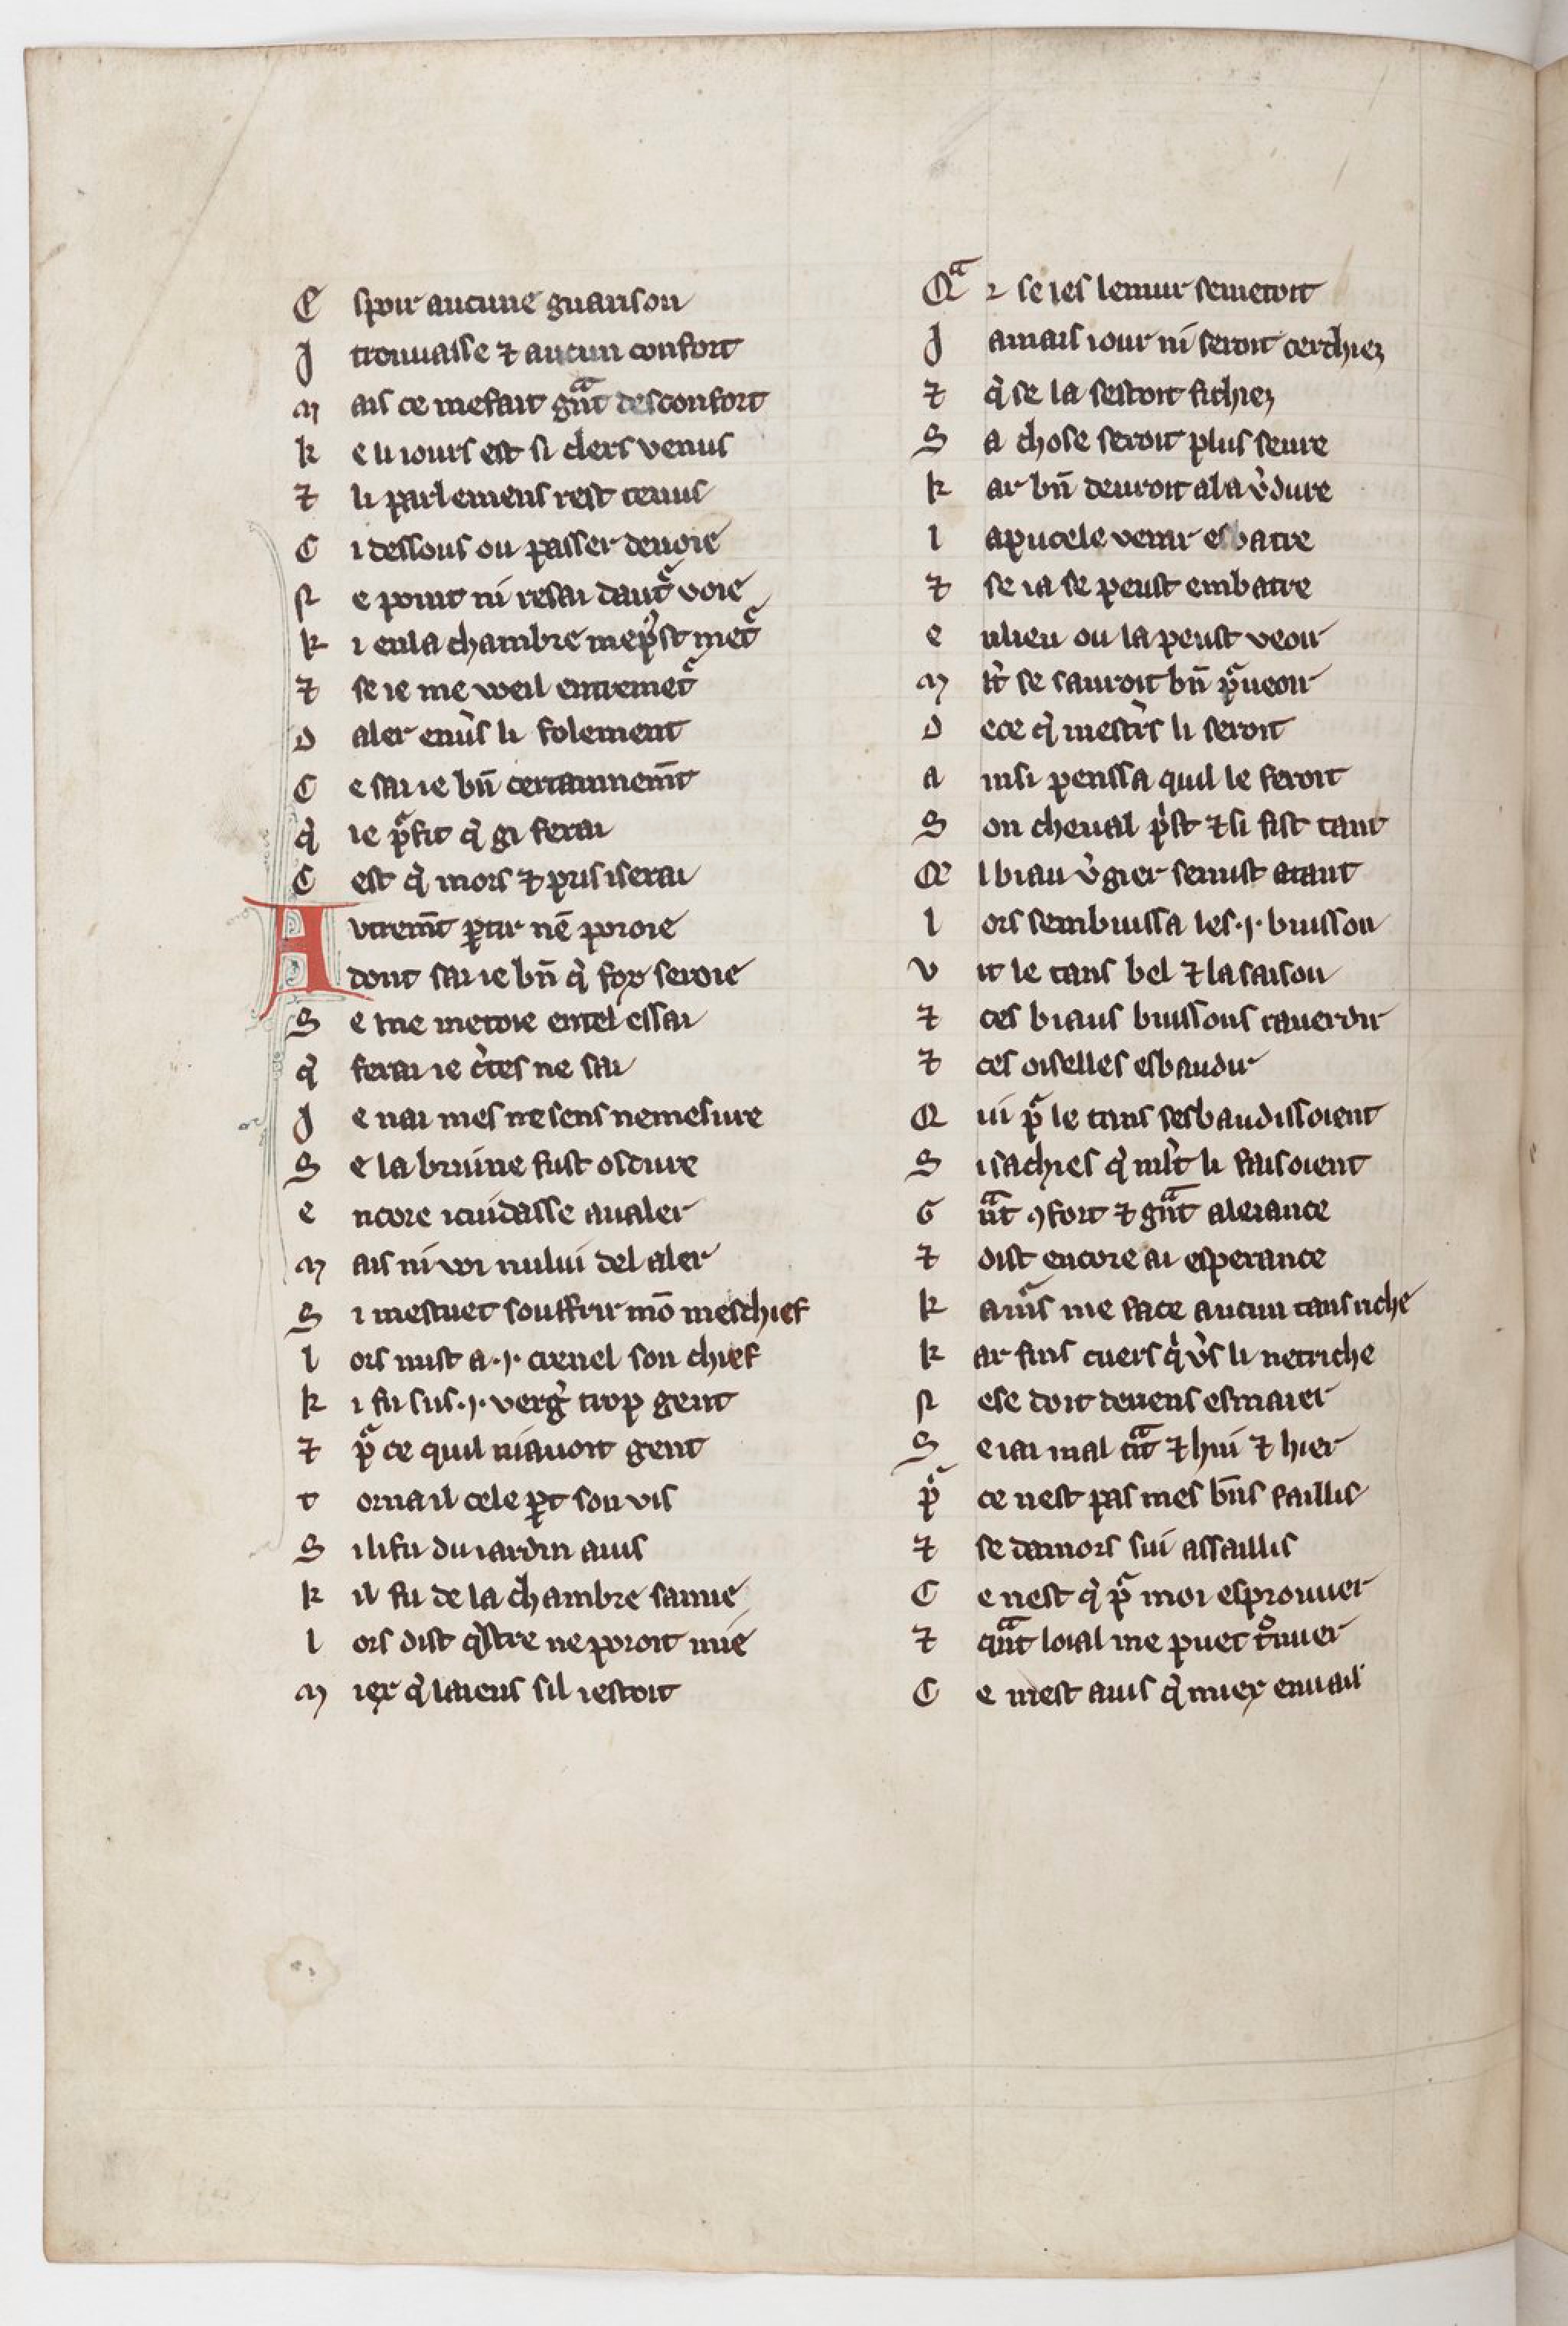 E spoir aucune guarison
J trouuaisse ⁊ aucun confort
M ais ce me fait gnͣt desconfort
K e li iours est si clers venus
⁊ li parlemens rest tenus
C i dessous ou passer deuoie
N e point ni resai dautͤ voie
K i en la chambre me pͥst metͤ
⁊ se ie me voeil entremetͤ
D aler enuͤs li folement
C e sai ie bn̄ certainnemn̄t
qͥ ie pͣfit qͥ gi ferai
C est qͥ mors ⁊ pris i serai
A vtremn̄t ꝑtir nē poroie
dont sai ie bn̄ qͥ fox seroie
S e me metoie en tel essai
qͥ ferai ie cͤtes ne sai
J e nai mes ne sens ne mesure
S e la bruine fust oscure
E ncore i cuidasse aualer
M ais ni voi nului del aler
S i mestuet souffrir mō meschief
L ors mist a .j. crenel son chief
K i fu sus .j. vergͥ trop gent
⁊ pͣ ce quil ni auoit gent
T orna il cele ꝑt son vis
S i li fu du iardin auis
K il fu de la chambre samie
L ors dist qͥstre ne poroit mie
M iex qͥ laiens sil i estoit
Qͣ r se ies lemur se metoit
J amais iour ni seroit cerchiez
⁊ qͥ se la sestoit fichiez
S a chose seroit plus seure
K ar bn̄ deuroit a la vͤdure
L a pucele venir esbatre
⁊ se ia se peust embatre
E n lieu ou la peust veoir
M lt̓ se sauroit bn̄ pͣueoir
D e ce qͥ mestͥs li seroit
A insi penssa quil le feroit
S on cheual pͥst ⁊ si fist tant
Qͤ l biau vͤgier se mist atant
L ors sembuissa les .j. buisson
V it le tans bel ⁊ la saison
⁊ ces biaus buissons rauerdir
⁊ ces oiselles esbaudir
Q ui pͣ le tans sesbaudissoient
S i sachies qͥ ml̓t li faisoient
G nͣt ꝯfort ⁊ gnͣt aleiance
⁊ dist encore ai esperance
K amͬs me face aucun tans riche
K ar fins cuers qͥ vͤs li ne triche
N e se doit de riens esmaier
S e iai mal tͣt ⁊ hui ⁊ hier
pͣ ce nest pas mes bn̄s faillis
⁊ se damors sui assaillis
C e nest qͥ pͣ moi esprouuer
⁊ qnͣt loial me puet tͦuuer
C e mest auis qͥ miex en vail